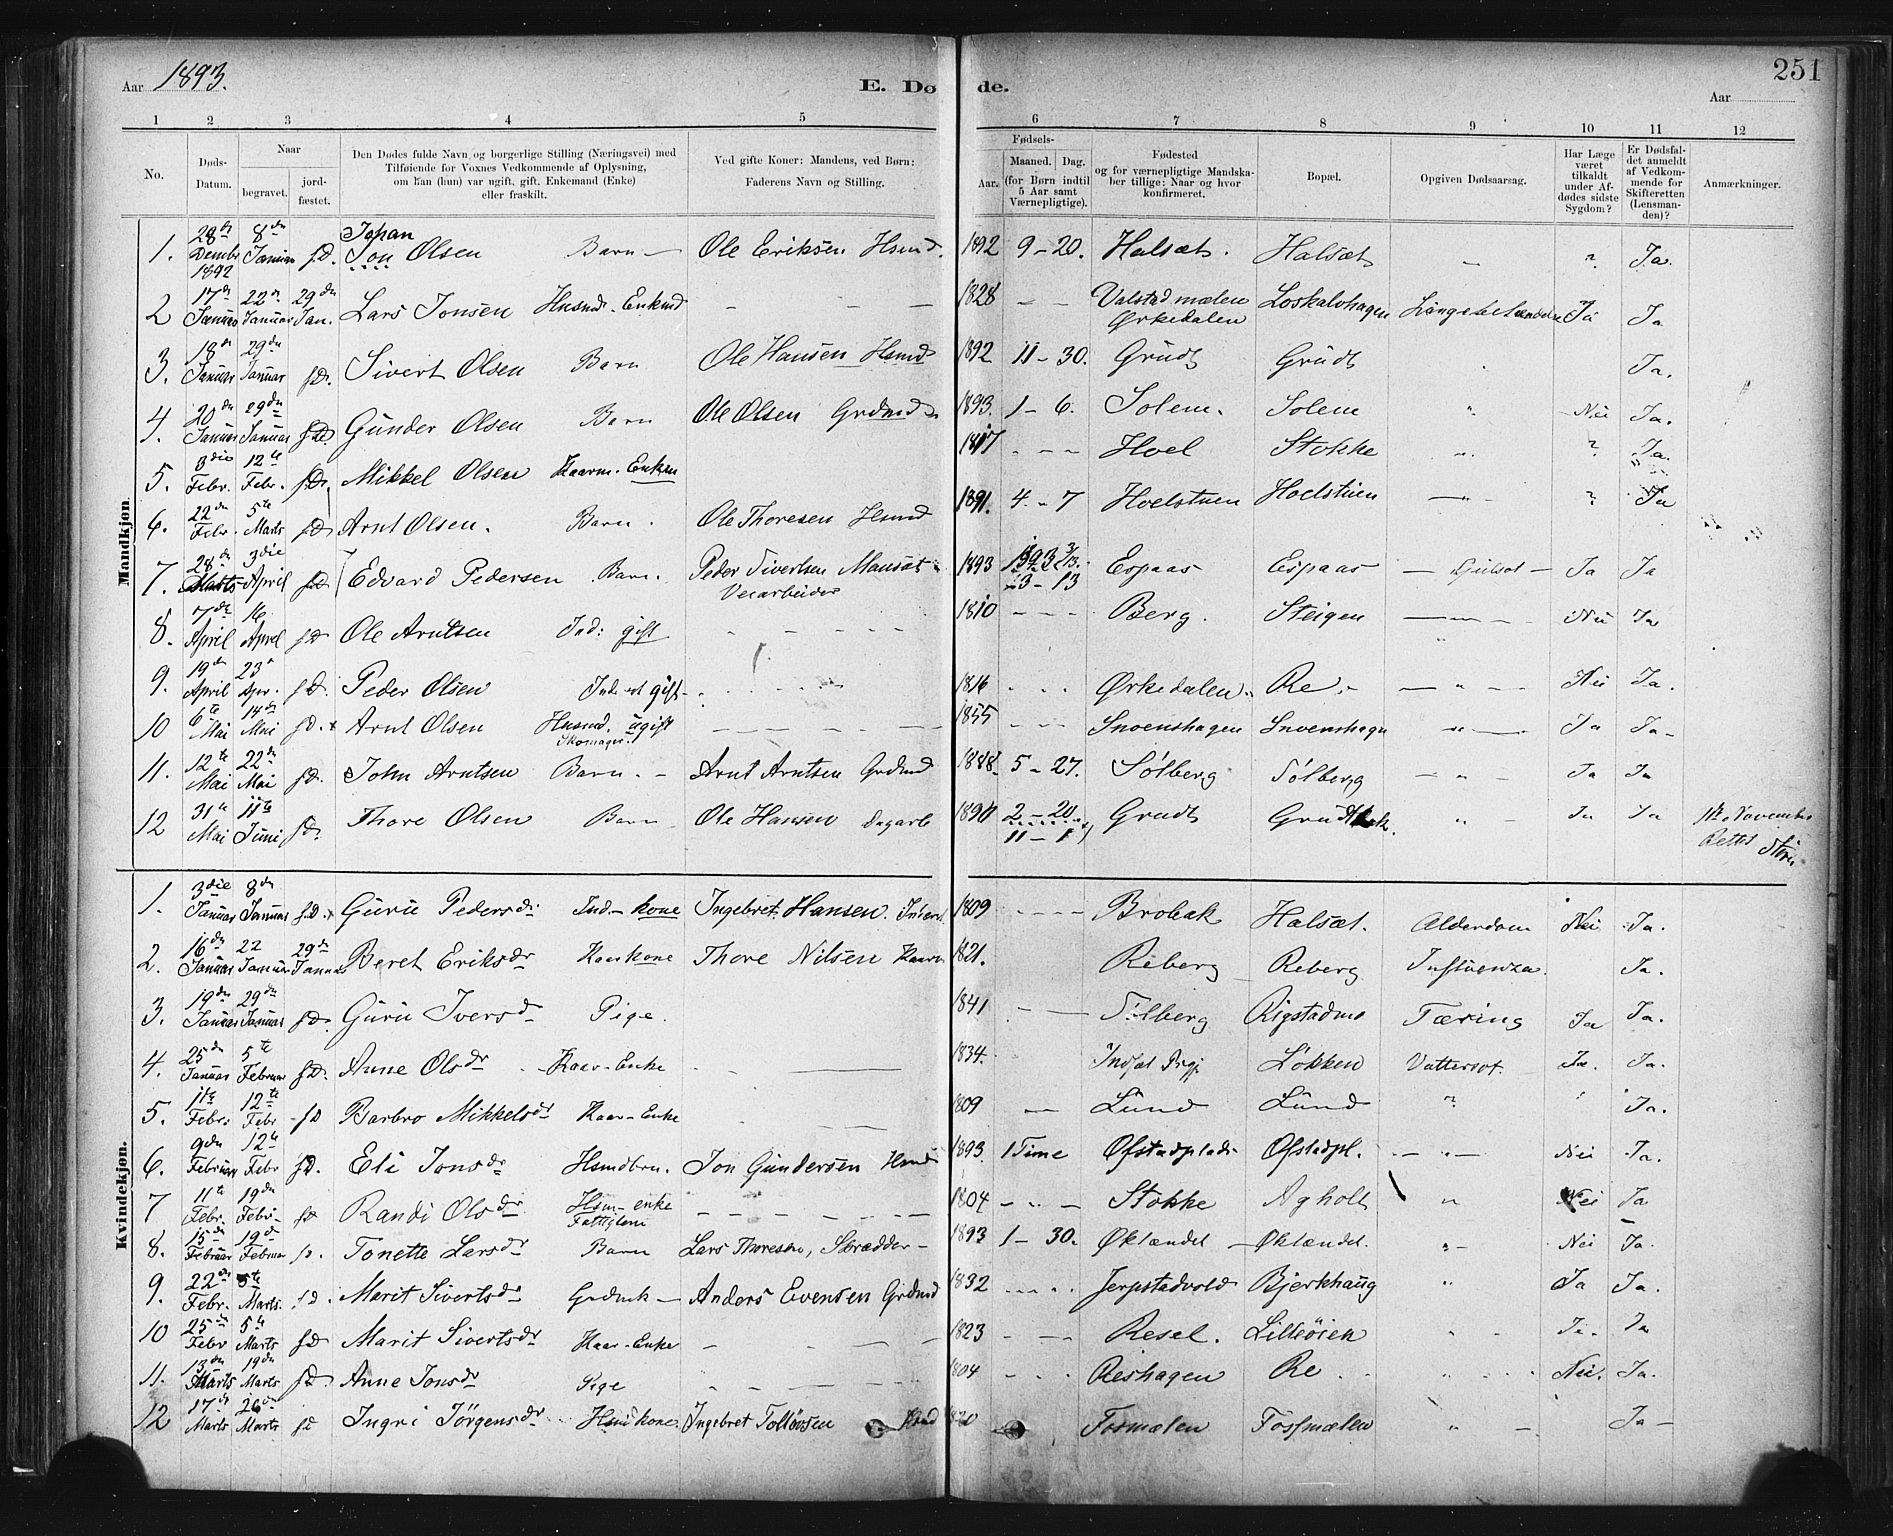 Aar 1893.
E. Døde.
251
Aar
1 2 3 4 5 6 7 8 9 10 11 12
No.
Døds-Datum.
Naar
begravet.
jord-fæstet.
Den Dødes fulde Navn og borgerlige Stilling (Næringsvei) med
Tilføiende for Voxnes Vedkommende af Oplysning,
om han (hun) var ugift, gift, Enkemand (Enke)
eller fraskilt.
Ved gifte Koner: Mandens, ved Børn:
Faderens Navn og Stilling.
Fødsels-
Aar.
Maaned. Dag.
(for Børn indtil
5 Aar samt
Værnepligtige).
Fødested
og for værnepligtige Mandska-
ber tillige: Naar og hvor
konfirmeret.
Bopæl.
Opgiven Dødsaarsag.
Har Læge
været
tilkaldt
under Af-
dødes sidste
Sygdom?
Er Dødsfal-
det anmeldt
af Vedkom-
mende for
Skifteretten
(Lensman-
den)?
Anmærkninger.
Mandkjøn.
1. 28de Dembr 1892 8de Januar fD. Johan Jon Olsen Barn — Ole Eriksen Hsmd. 1892 9 – 20. Halsæt. Halsæt — ? Ja.
2 17de Januar 22de Januar 29de Jan. Lars Jonsen Husmd. Enkemd — — — 1828 — — Valstadmælen Ørkedalen Loskalvhagen Ja Ja
3. 18de Januar 29de Januar fD. Sivert Olsen Barn Ole Hansen Hsmd 1892 11 – 30. Grudt Grudt Ja.
4. 20de Januar 29de Januar fD. Gunder Olsen Barn Ole Olsen Grdmd 1893. 1 – 6. Solem. Solem " Nei Ja.
5. 3die Febr. 12te Febr. fD. Mikkel Olsen Kaarm. Enkem 1817 - - - Hoel Stokke " ? Ja.
6. 22de Febr. 5te Marts fD Arnt Olsen. Barn. Ole Thoresen Hsmd 1891. 4 – 7 Hoelstuen Hoelstuen — " — ? Ja
7. 28de Marts 3die April fD Edvard Pedersen Barn. Peder Sivertsen Mansæt Veiarbeider 1893 3 – 13 Espaas Espaas — Gulsot — Ja Ja
8. 7de April 16 April fD Ole Arntsen Ind: gift — — — 1810 - - - Berg. Steigen — " — Nei Ja
9. 19de April 23 Apr. fD. Peder Olsen gift - 1816 - - - Ørkedalen Re — " — Nei Ja.
10 6te Mai 14de Mai fD. Arnt Olsen Husmd. ugift Skomager. — — — 1855 - - - Snoenshagen Snoenshagn " — Ja Ja
11. 12te Mai 22de Mai fD. John Arntsen Barn. — Arnt Arntsen Grdmd 1888. 5 – 27. Sølberg Sølberg — " — Ja Ja
12 31te Mai 11te Juni fD. Thore Olsen Barn Ole Hansen Dagarb 1890 2 – 20 11 – 1 Grudt " — Ja Ja 1te November Rettet
Kvindekjøn.
1. 3die Januar 8de Januar fD. Guru Pedersdr Ind – kone Ingebret Hansen. 1809 - - - Brobak Halsæt. Alderdom Nei Ja.
2. 16de Januar 22 Januar 29de Januar Beret Eriksdr Kaarkone Thore Nilsen Kaarm 1821. Reberg Reberg Influenza. Ja.
3. 19de Januar 29de Januar fD. Guru Iversdr Pige. 1841 - — Sølberg Rigstadmo Tæring Ja Ja.
4. 25de Januar 5te Februar fD. Anne Olsdr Kaar-Enke — 1834. Løkken Vattersot. Ja. Ja.
5. 11te Febr. 12te Febr fD Barbro Mikkelsdr Kaar-Enke — 1809 — Lund Lund " Ja.
6. 9de Februar 12te Febr fD. Eli Jonsdr Hsmdbrn. Jon Gundersen Hsmd 1893. 1 Time Ofstadplads Ofstadpl. — " — Nei Ja.
7 11te Febr. 19de Febr. fD Randi Olsdr Hsm-enke Fattiglem — — — 1804 - - - Stokke Agholt " Nei Ja
8. 15de Februar 19de Februar fD. Tonette Larsdr Barn Lars Thoresen, Skrædder — 1893 1 – 30. Øklændet — Øklændet. " — Nei Ja.
9. 22de Febr. 5te Marts. fD. Marit Sivertsdr Grdmk — Anders Evensen Grdmd 1832 - - - Jerpstadvold Bjerkhaug " Ja Ja.
10 25de Febr 5te Marts fD Marit Sivertsdr Kaar-Enke — — — 1823 - - - Resel. Lilleøien " Ja. Ja
11. 13de Marts 19de Marts fD. Anne Jonsdr Pige — — — 1804 - - - Reshagen Re " Nei. Ja.
12 17de Marts 26de Marts fD Ingri Jørgensdr Hsmdkone. Ingebret Tollevsen Hsmd 1820 Fosmælen Fossmælen " — Ja —